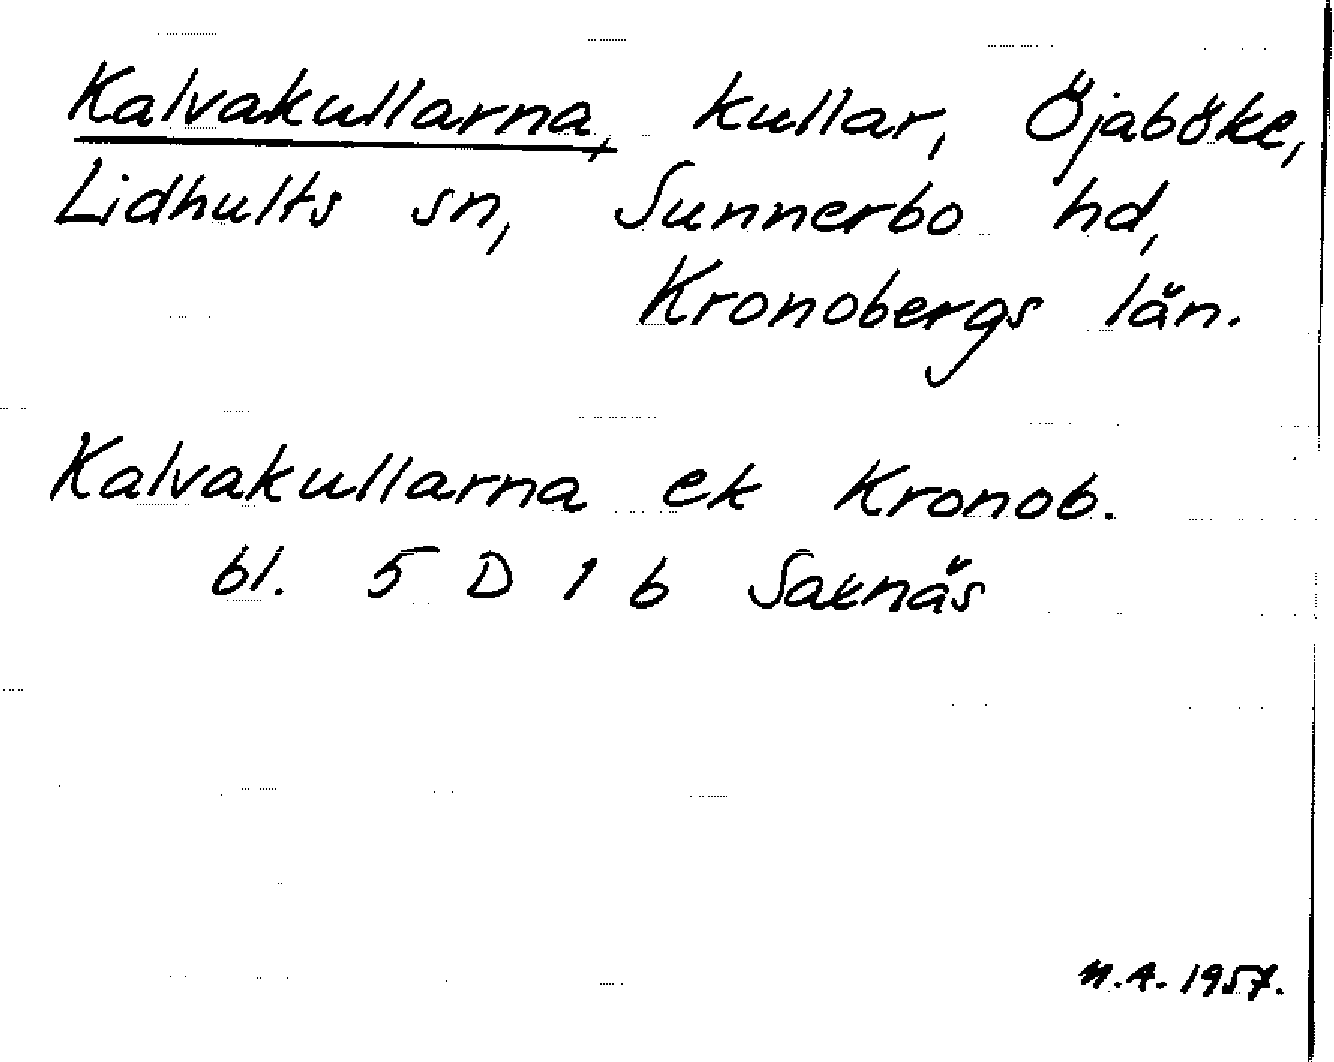 Kalvakullarna, kullar, Öjaböke,
Lidhults sn, Sunnerbo hd,
Kronobergs län.
Kalvakullarna ek Kronob.
bl. 5 D 1 b Saxnäs
N.A. 1957.